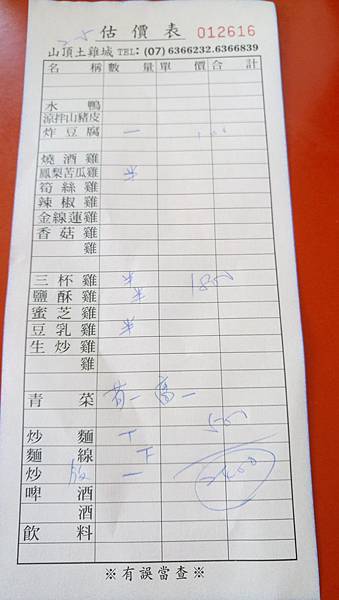 2-5 估價表 012616
山頂土雞城 TEL: (07) 6366232.6366839
名稱 數量 單價 合計
水鴨
涼拌山豬皮
炸豆腐 一 100
燒酒雞
鳳梨苦瓜雞 半
筍絲雞
辣椒雞
金線蓮雞
香菇雞
雞
三杯雞 半 1800
鹽酥雞 半
蜜芝雞
豆乳雞 半
生炒雞
雞
青菜 一 高一
炒麵 下 500
麵線 下
炒飯 一
啤酒 2400
酒
飲料
※有誤當查※